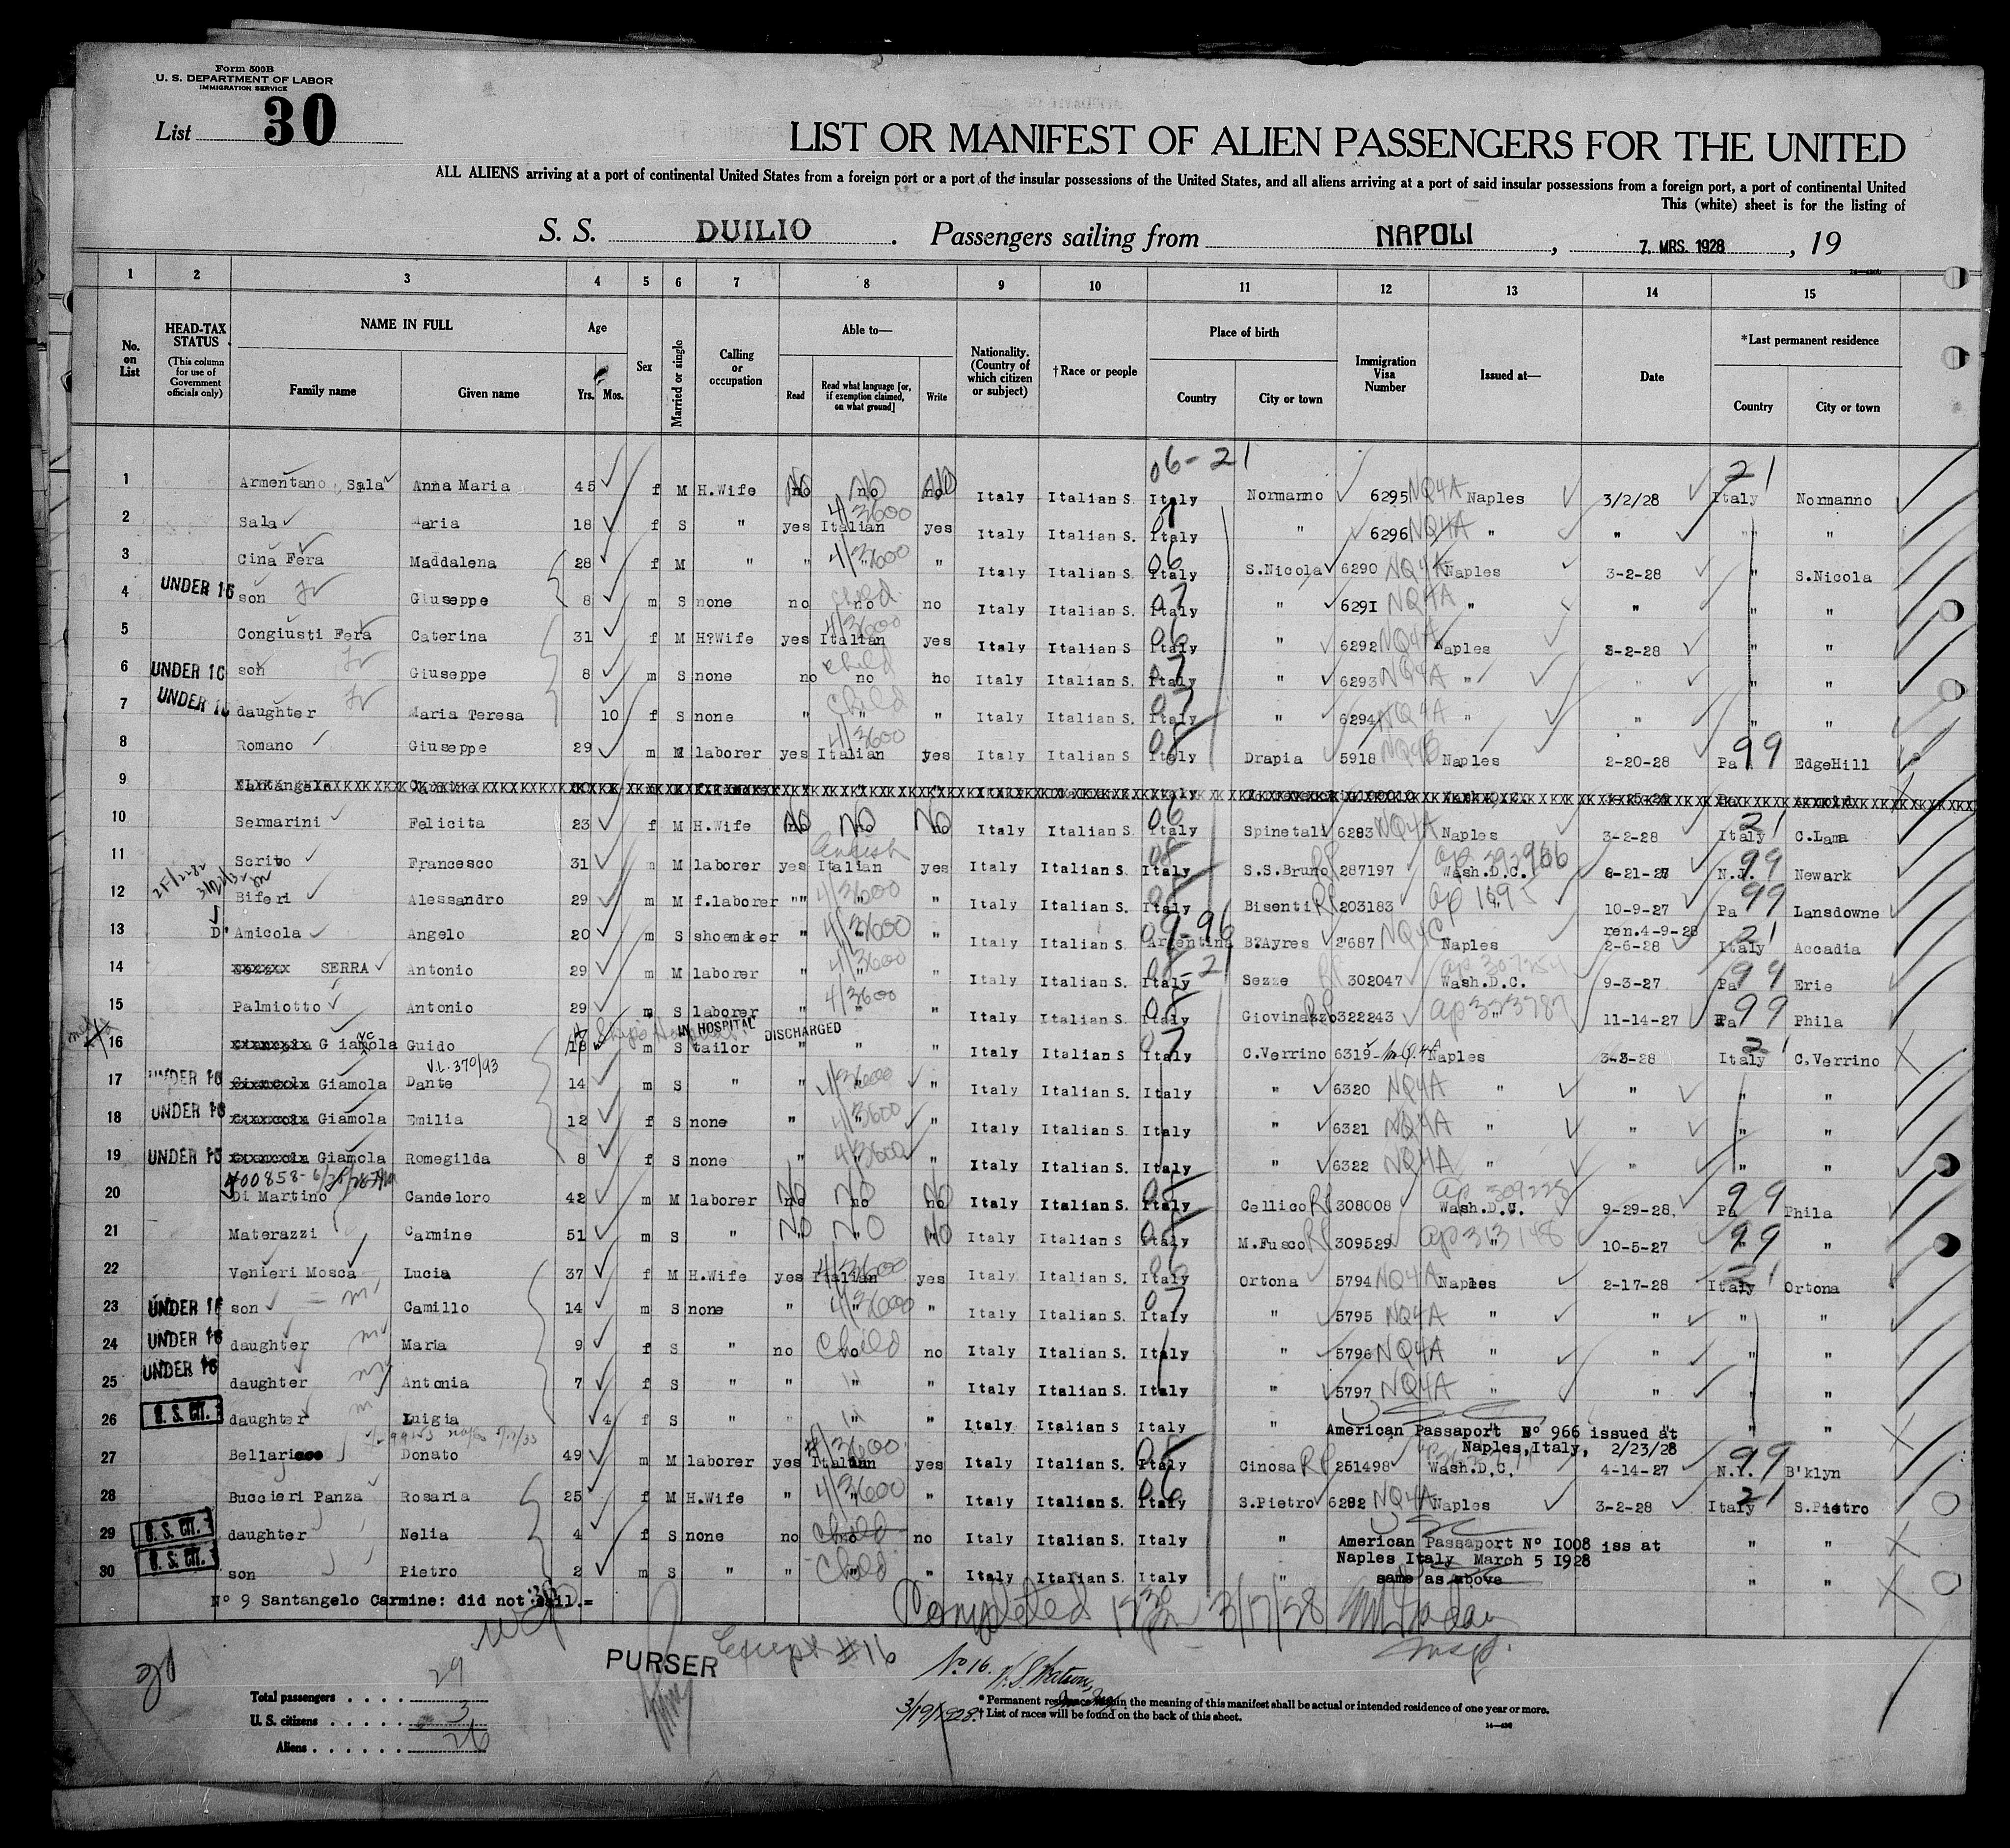 Form 500B
U. S. DEPARTMENT OF LABOR
IMMIGRATION SERVICE
List 30
LIST OR MANIFEST OF ALIEN PASSENGERS FOR THE UNITED
ALL ALIENS arriving at a port of continental United States from a foreign port or a port of the insular possessions of the United States, and all aliens arriving at a port of said insular possessions from a foreign port, a port of continental United
This (white) sheet is for the listing of
S. S. DUILIO . Passengers sailing from NAPOLI , 7. MRS. 1928 , 19
1 2 3 4 5 6 7 8 9 10 11 12 13 14 15
No. on List
HEAD-TAX STATUS (This column for use of Government officials only)
NAME IN FULL Family name Given name
Age Yrs. Mos.
Sex
Married or single
Calling or occupation
Able to— Read Read what language [or, if exemption claimed, on what ground] Write
Nationality. (Country of which citizen or subject)
†Race or people
Place of birth Country City or town
Immigration Visa Number
Issued at—
Date
*Last permanent residence Country City or town
06-21 21
1 Armentano Sala Anna Maria 45 f M H.Wife no no no Italy Italian S. Italy Normanno 6295 NQ4A Naples 3/2/28 Italy Normanno
2 Sala Maria 18 f S " yes Italian yes Italy Italian S. Italy " 6296 NQ4A " " " "
3 Cina Fera Maddalena 28 f M " " " " Italy Italian S Italy S.Nicola 6290 NQ4A Naples 3-2-28 " S.Nicola
4 UNDER 16 son Giuseppe 8 m S none no no no Italy Italian S. Italy " 6291 NQ4A " " " "
5 Congiusti Fera Caterina 31 f M H?Wife yes Italian yes Italy Italian S Italy " 6292 NQ4A Naples 3-2-28 " "
6 UNDER 16 son Giuseppe 8 m S none no no no Italy Italian S. Italy " 6293 NQ4A " " " "
7 UNDER 16 daughter Maria Teresa 10 f S none " " " Italy Italian S. Italy " 6294 NQ4A " " " "
8 Romano Giuseppe 29 m M laborer yes Italian yes Italy Italian S Italy Drapia 5918 Naples 2-20-28 Pa 99 EdgeHill
9
10 Sermarini Felicita 23 f M H.Wife no NO no Italy Italian S. Italy Spinetali 6283 NQ4A Naples 3-2-28 Italy C.Lama
11 Scrivo Francesco 31 m M laborer yes Italian yes Italy Italian S. Italy S.S.Bruno 287197 Wash.D.C. N.J. 99 Newark
12 Biferi Alessandro 29 m M f.laborer "" " " Italy Italian S. Italy Bisenti 203183 " 10-9-27 Pa 99 Lansdowne
ren.4-9-28
13 Amicola Angelo 20 m S shoemaker " " " Italy Italian S. Argentina B?Ayres 2687 Naples 2-6-28 Italy Accadia
14 SERRA Antonio 29 m M laborer " " " Italy Italian S. Italy Sezze 302047 Wash.D.C. 9-3-27 Pa 99 Erie
15 Palmiotto Antonio 29 m S laborer " " " Italy Italian S. Italy Giovinazzo 322243 " 11-14-27 Pa 99 Phila
IN HOSPITAL DISCHARGED
16 Giamola Guido 18 m S tailor " " " Italy Italian S. Italy C.Verrino 6319 Naples 3-3-28 Italy C.Verrino
V.L. 370/93
17 UNDER 16 Giamola Dante 14 m S " " " " Italy Italian S. Italy " 6320 NQ4A " " " "
18 UNDER 16 Giamola Emilia 12 f S none " " " Italy Italian S. Italy " 6321 NQ4A " " " "
19 UNDER 16 Giamola Romegilda 8 f S none " " " Italy Italian S. Italy " 6322 NQ4A " " " "
20 Di Martino Candeloro 42 m M laborer no no no Italy Italian S. Italy Cellico 308008 Wash.D.C. 9-29-28 Pa 99 Phila
21 Materazzi Carmine 51 m S " " " " Italy Italian S Italy M.Fusco 309529 " 10-5-27 " 99 "
22 Venieri Mosca Lucia 37 f M H.Wife yes Italian yes Italy Italian S. Italy Ortona 5794 NQ4A Naples 2-17-28 Italy Ortona
23 UNDER 16 son Camillo 14 m S none " " " Italy Italian S. Italy " 5795 NQ4A " " " "
24 UNDER 16 daughter Maria 9 f S " no Child no Italy Italian S. Italy " 5796 NQ4A " " " "
25 UNDER 16 daughter Antonia 7 f S " " " " Italy Italian S. Italy " 5797 NQ4A " " " "
26 U. S. CIT. daughter Luigia 4 f S " " " " Italy Italian S Italy " American Passaport N° 966 issued at " "
Naples,Italy, 2/23/28
27 Bellari Donato 49 m M laborer yes Italian yes Italy Italian S. Italy Ginosa 251498 Wash.D.C. 4-14-27 N.Y. 99 B'klyn
28 Buccieri Panza Rosaria 25 f M H.Wife " " " Italy Italian S. Italy S.Pietro 6282 NQ4A Naples 3-2-28 Italy S.Pietro
29 U. S. CIT. daughter Nelia 4 f S none no Child no Italy Italian S. Italy " American Passaport N° 1008 iss at " "
Naples Italy March 5 1928
30 U. S. CIT. son Pietro 2 m S " " Child " Italy Italian S. Italy " same as above " "
N° 9 Santangelo Carmine: did not sail.=
Completed 3/17/28
Insp.
PURSER Except #16
No 16. 3/19/1928
Total passengers . . . . 29
U. S. citizens . . . . . 3
Aliens . . . . . . 26
* Permanent residence within the meaning of this manifest shall be actual or intended residence of one year or more.
† List of races will be found on the back of this sheet.